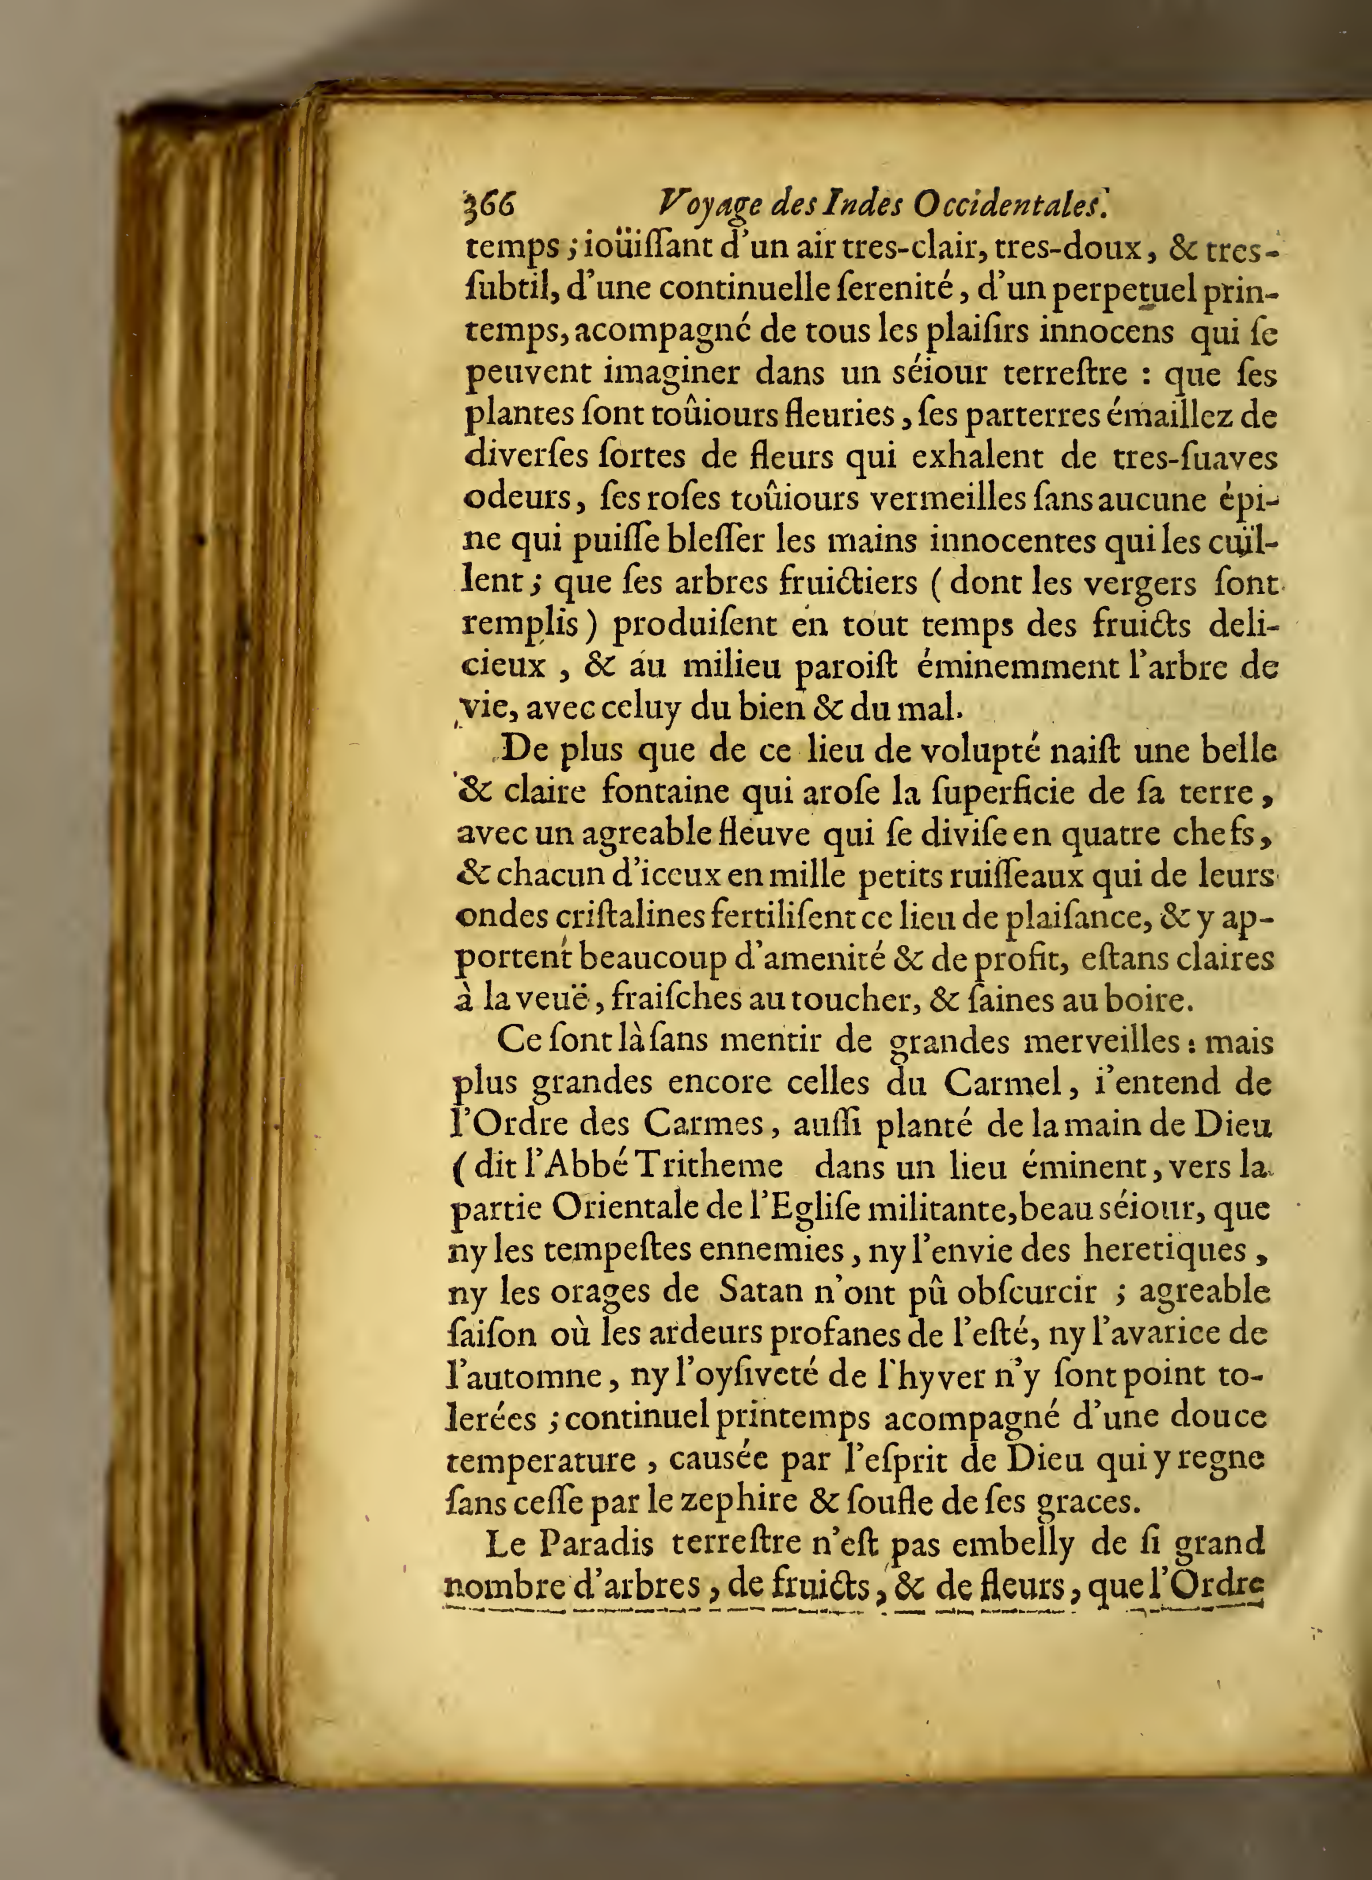 366 Voyage des Indes Occidentales.
temps ; ioüiſſant d'un air tres-clair, tres-doux, & tres-
ſubtil, d'une continuelle ſerenité, d'un perpetuel prin-
temps, acompagné de tous les plaiſirs innocens qui ſe
peuvent imaginer dans un séiour terreſtre : que ſes
plantes ſont toûiours fleuries, ſes parterres émaillez de
diverſes ſortes de fleurs qui exhalent de tres-ſuaves
odeurs, ſes roſes toûiours vermeilles ſans aucune épi-
ne qui puiſſe bleſſer les mains innocentes qui les cuïl-
lent ; que ſes arbres fruictiers ( dont les vergers ſont
remplis ) produiſent en tout temps des fruicts deli-
cieux , & au milieu paroiſt éminemment l'arbre de
vie, avec celuy du bien & du mal.
De plus que de ce lieu de volupté naiſt une belle
& claire fontaine qui aroſe la ſuperficie de ſa terre,
avec un agreable fleuve qui ſe diviſe en quatre chefs,
& chacun d'iceux en mille petits ruiſſeaux qui de leurs
ondes criſtalines fertiliſent ce lieu de plaiſance, & y ap-
portent beaucoup d'amenité & de profit, eſtans claires
à la veuë, fraiſches au toucher, & ſaines au boire.
Ce ſont là ſans mentir de grandes merveilles : mais
plus grandes encore celles du Carmel, i'entend de
l'Ordre des Carmes, auſſi planté de la main de Dieu
( dit l'Abbé Tritheme dans un lieu éminent, vers la
partie Orientale de l'Egliſe militante, beau séiour, que
ny les tempeſtes ennemies, ny l'envie des heretiques,
ny les orages de Satan n'ont pû obſcurcir ; agreable
ſaiſon où les ardeurs profanes de l'eſté, ny l'avarice de
l'automne, ny l'oyſiveté de l'hyver n'y ſont point to-
lerées ; continuel printemps acompagné d'une douce
temperature , causée par l'eſprit de Dieu qui y regne
ſans ceſſe par le zephire & ſoufle de ſes graces.
Le Paradis terreſtre n'eſt pas embelly de ſi grand
nombre d'arbres, de fruicts, & de fleurs, que l'Ordre